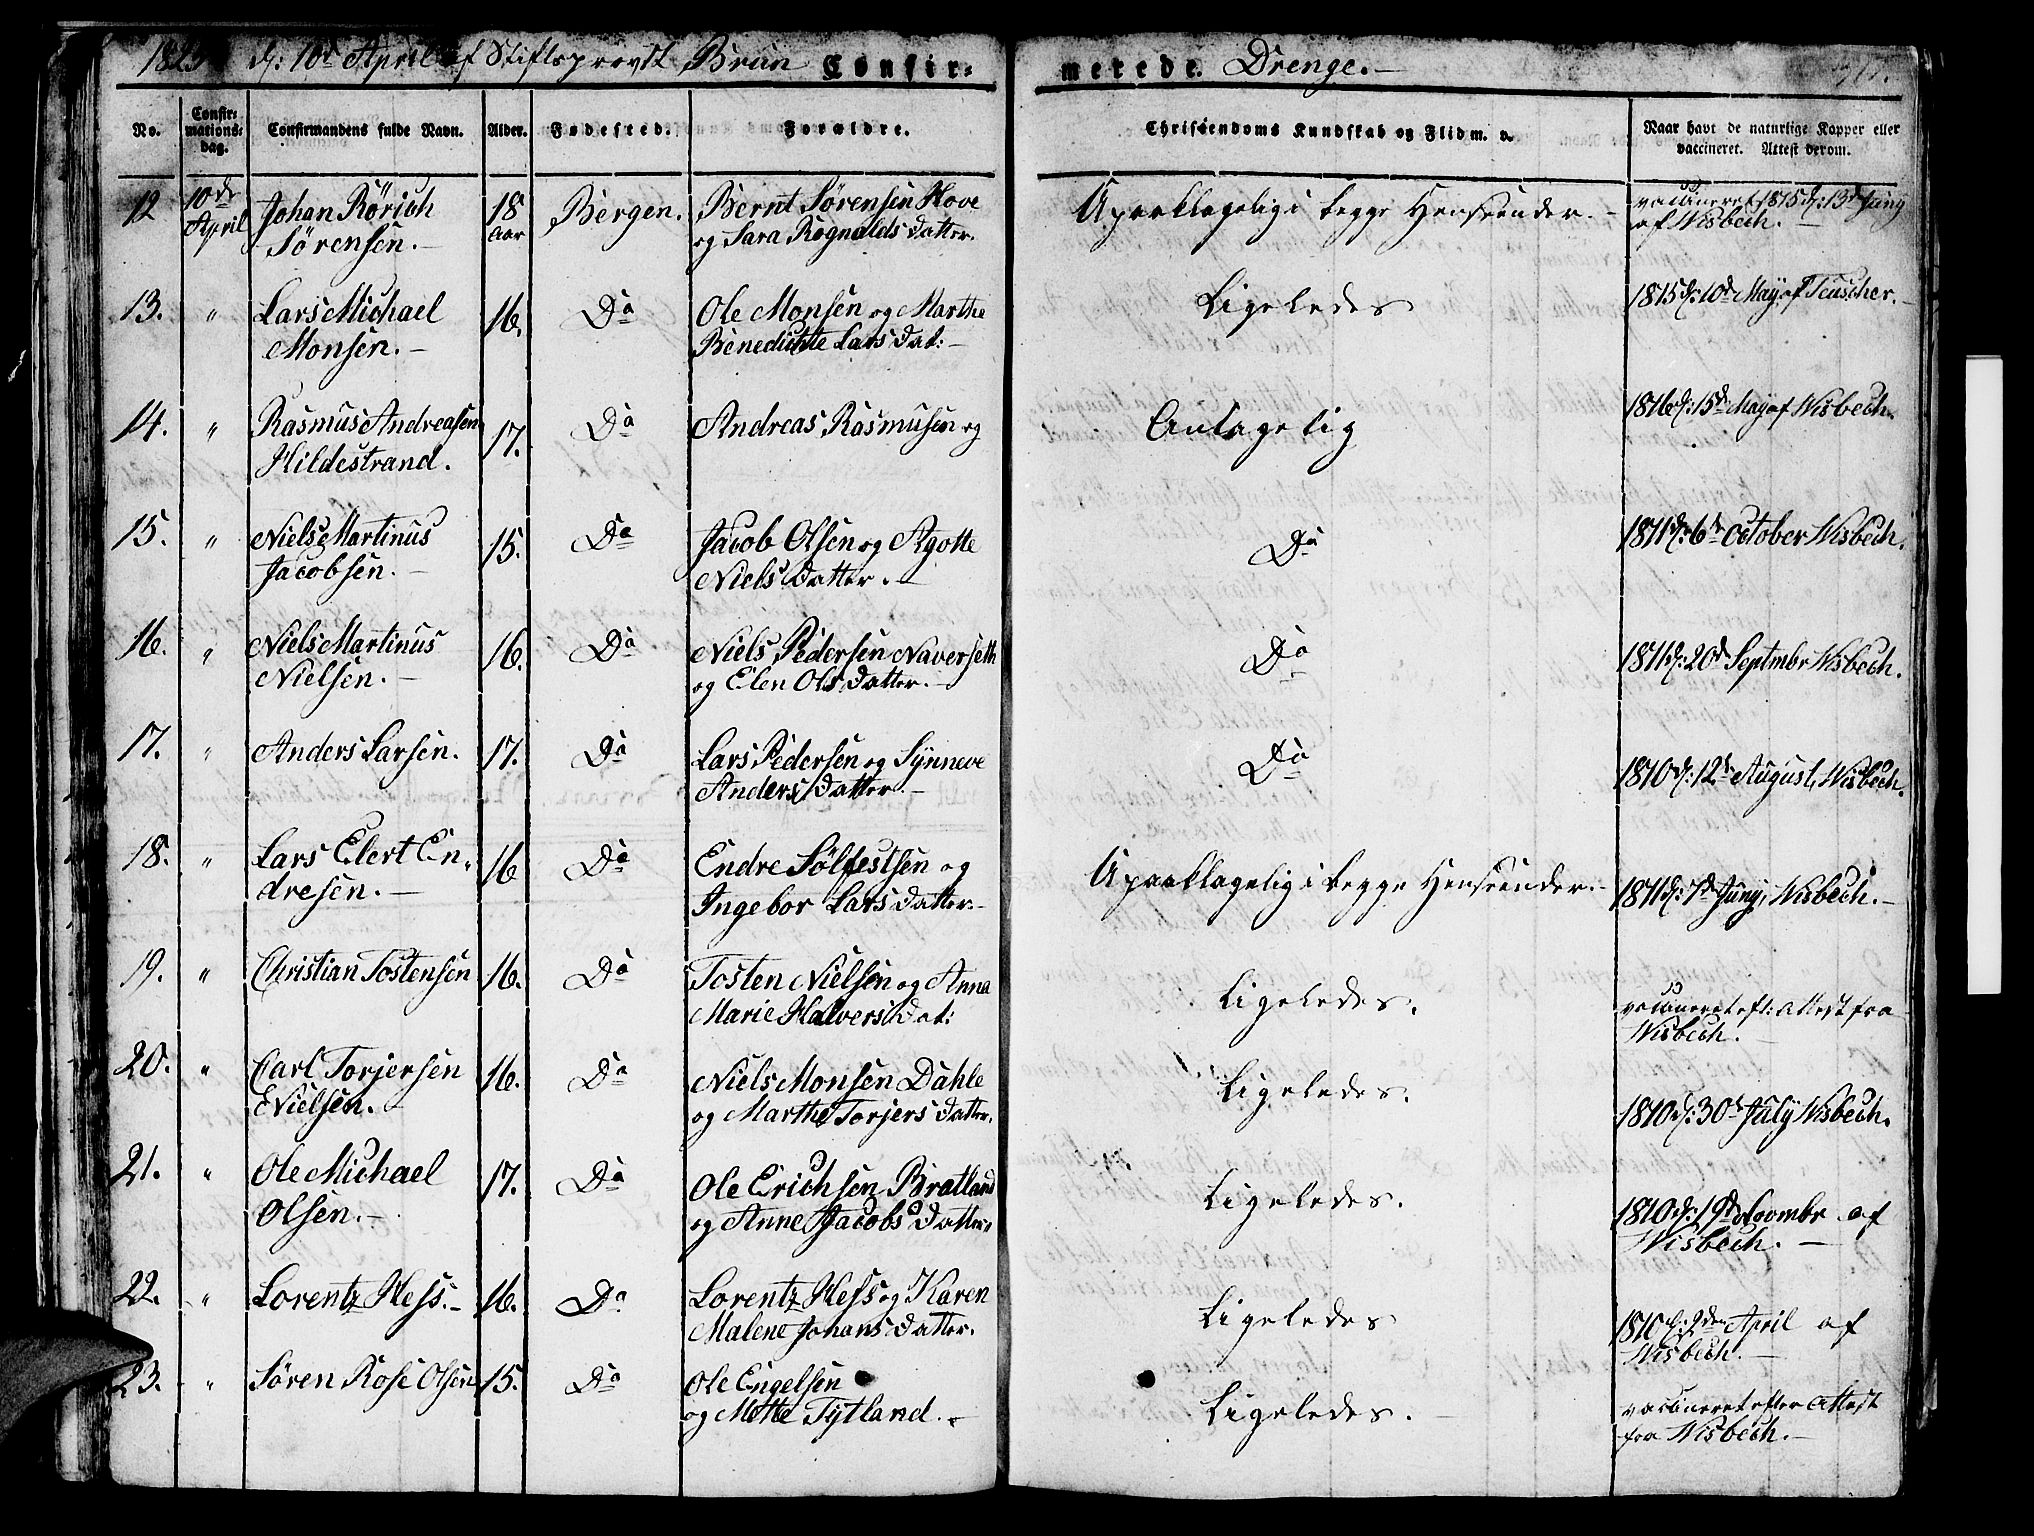 d: 10d April af Stiftsprovst Brun Confir-
merede Drenge.
No.
Confir-
mations-
dag.
Confirmandens fulde Navn.
Alder.
Fødested.
Forældre.
Christendoms Kundskab og Flid m. v.
Naar havt de naturlige Kopper eller
vaccineret. Attest derom.
12
10de
April
Johan Rörich
Sörensen.
18
Aar
Bergen.
Bernt Sörensen Hove
og Sara Rognalds Datter.
Upaaklagelig i begge Henseender.
vaccineret 1815 d: 13d Juny
af Wisbech.
13. " Lars Michael
Monsen.
16.
Do
Ole Monsen og Marthe
Benedichte Lars Dat:
Ligeledes
1815 d: 10d May af Teuscher.
14. " Rasmus Andreasen
Hildestrand.
17.
Do
Andreas Rasmusen og
Antagelig
1816 d: 15d May af Wisbech.
15. " Niels Martinus
Jacobsen.
15.
Do
Jacob Olsen og Agotte
Niels Datter.
Do
1811 d: 6te October Wisbech.
16. " Niels Martinus
Nielsen.
16.
Do
Niels Pedersen Naverseth
og Elen Ols Datter.
Do
1811 d: 20d Septmbr Wisbech.
17. " Anders Larsen.
17.
Do
Lars Pedersen og Synneve
Anders Datter.
Do
1810 d: 12t August, Wisbech.
18. " Lars Elert En-
dresen.
16
Do
Endre Sölfestsen og
Ingebor Lars Datter.
Upaaklagelig i begge Henseender.
1811 d: 7d Juny, Wisbech.
19. " Christian Tostensen
16.
Do
Tosten Nielsen og Anna
Marie Halvers Dat:
Ligeledes.
vaccineret eft: Attest fra
Wisbech.
20. " Carl Torjersen
Nielsen.
16.
Do
Niels Monsen Dahle
og Marthe Torjers Datter.
Ligeledes.
1810 d: 30t July Wisbech.
21. " Ole Michael
Olsen.
17.
Do
Ole Erichsen Bratland
og Anne Jacobs Datter.
Ligeledes.
1810 d: 19d Novmbr af
Wisbech.
22. " Lorentz Hess.
16.
Do
Lorentz Hess og Karen
Malene Johans Datter.
Ligeledes
1810 d: 2den April af
Wisbech.
23. " Sören Rose Olsen
15.
Do
Ole Engelsen
og Mette Tytland.
Ligeledes.
vaccineret efter Attest
fra Wisbech.